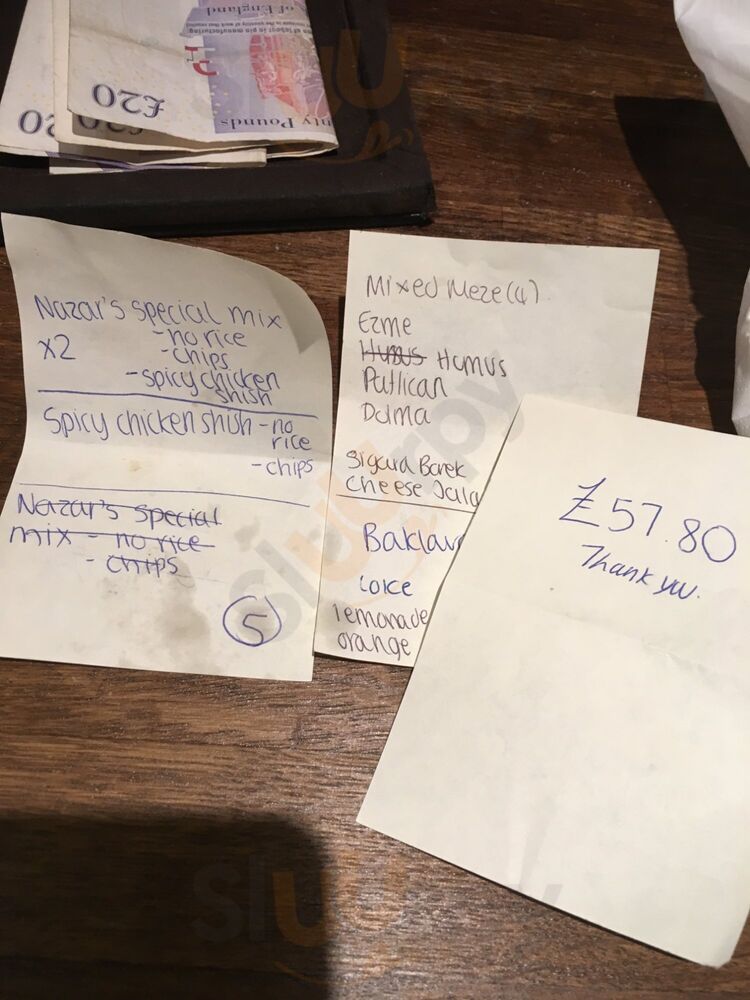 of England
£20
nty Pounds
20
Nazar's special mix
x2 - no rice
- chips
- spicy chicken
shish
Spicy chicken shish - no
rice
- chips
Nazar's special
mix - no rice
- chips
5
Mixed Meze (4)
Ezme
Humus Humus
Patlican
Dolma
Sigara Borek
Cheese Jala
Baklav
coke
lemonade
orange
£57.80
Thank you.
sluurpy
sluurpy